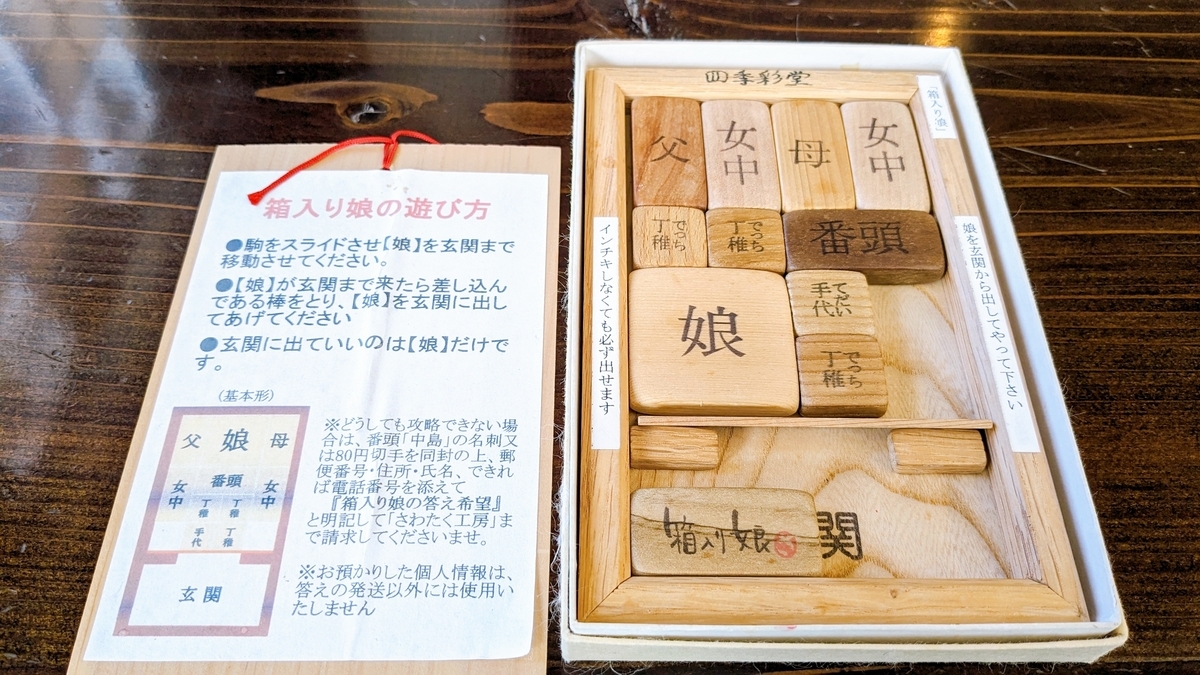 箱入り娘の遊び方
●駒をスライドさせ【娘】を玄関まで
移動させてください。
●【娘】が玄関まで来たら差し込ん
である棒をとり、【娘】を玄関に出し
てあげてください
●玄関に出ていいのは【娘】だけで
す。
(基本形)
父 娘 母
番頭
女中 丁稚 丁稚 女中
手代 丁稚
玄関
※どうしても攻略できない場
合は、番頭「中島」の名刺又
は80円切手を同封の上、郵
便番号・住所・氏名、できれ
ば電話番号を添えて
『箱入り娘の答え希望』
と明記して「さわたく工房」ま
で請求してくださいませ。
※お預かりした個人情報は、
答えの発送以外には使用い
たしません
四季彩堂
「箱入り娘」
父 女中 母 女中
丁稚 でっち
丁稚 でっち
番頭
娘
手代 てだい
丁稚 でっち
インチキしなくても必ず出せます
娘を玄関から出してやって下さい
箱入り娘
関